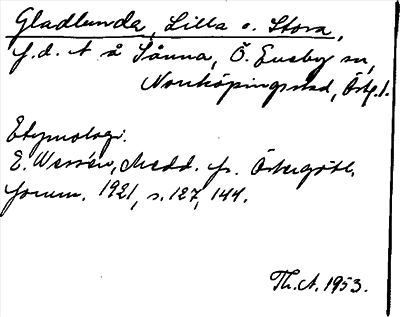 Gladlunda, Lilla o. Stora,
f.d. t å Sånna, Ö. Eneby sn,
Norrköpingsrad, Östg. l.
Etymologi.
E. Wessén, Medd. fr. Östergötl.
fornm. 1921, s. 127, 144.
Th. A. 1953.